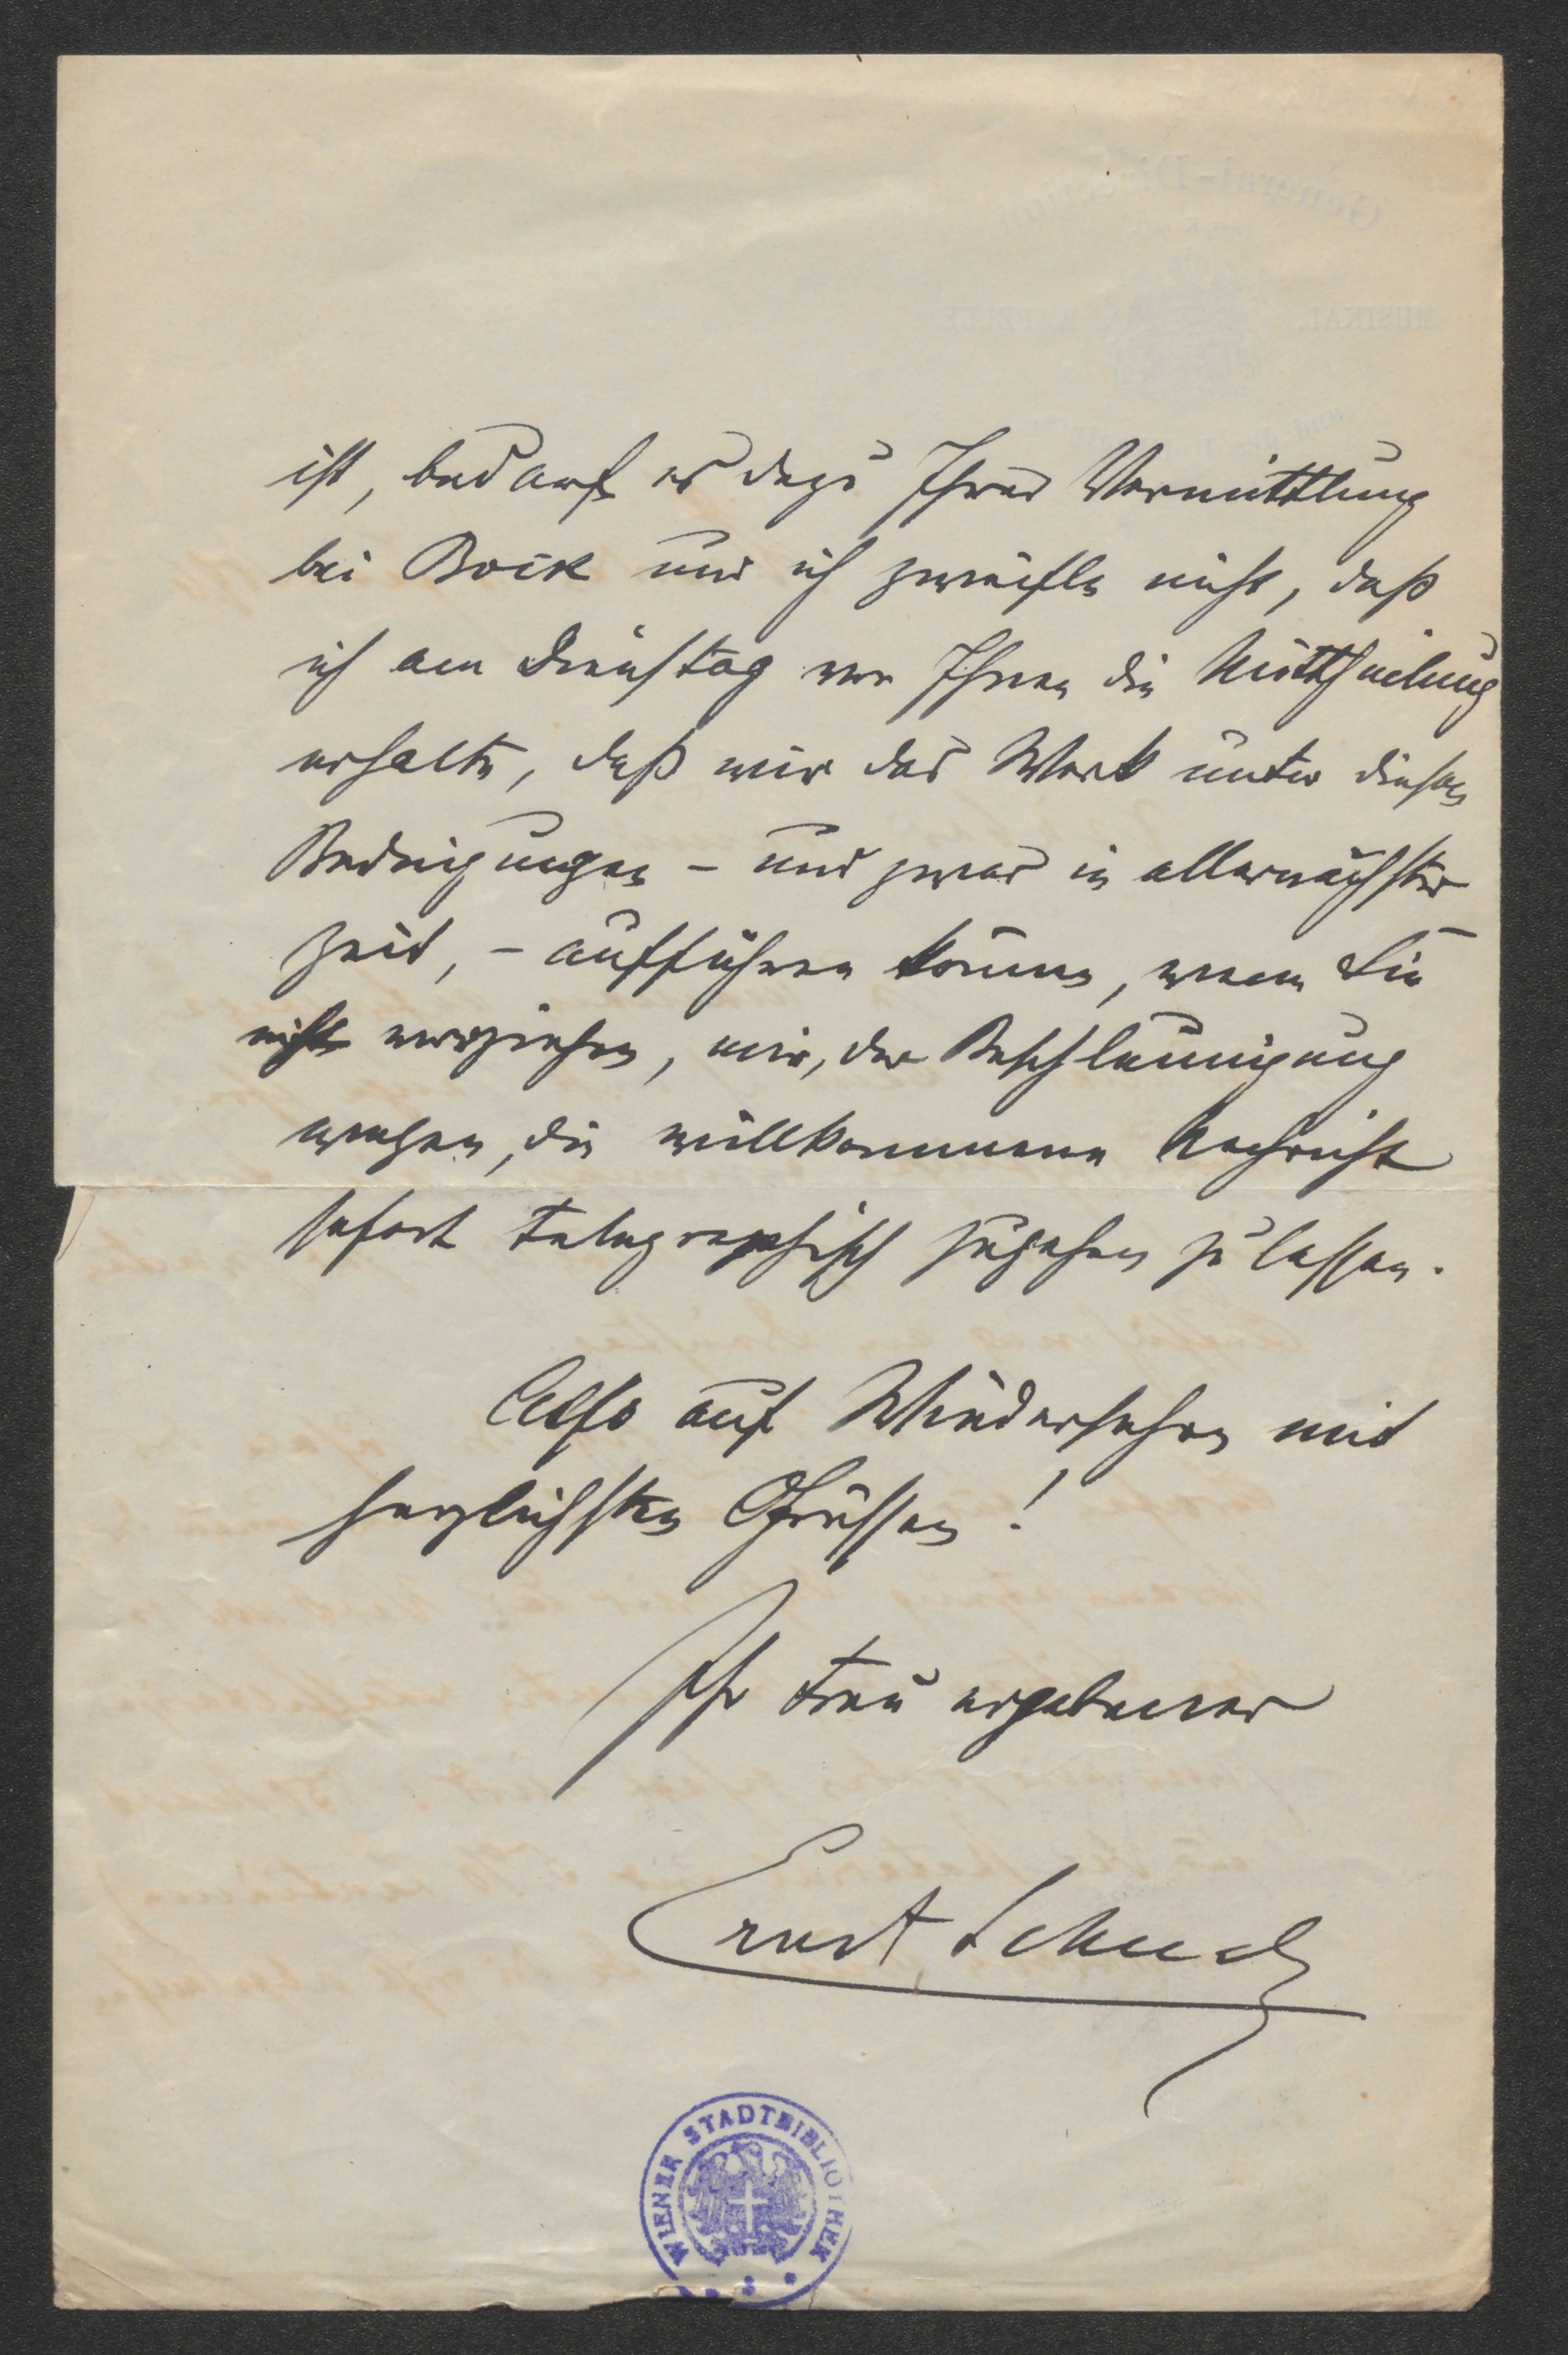 ist, bedarf es dazu Ihrer Vermittlung
bei Bock und ich zweifle nicht, daß
ich am Dienstag von Ihnen die Mittheilung
erhalte, daß wir das Werk unter diesen
Bedingungen – und zwar in allernächster
Zeit, – aufführen können, wenn Sie
nicht vorziehen, mir, der Beschleunigung
wegen, die willkommene Nachricht
sofort telegraphisch zugehen zu lassen.
Also auf Wiedersehen mit
herzlichsten Grüssen!
Ihr treu ergebener
Ernst Schuch
WIENER STADTBIBLIOTHEK